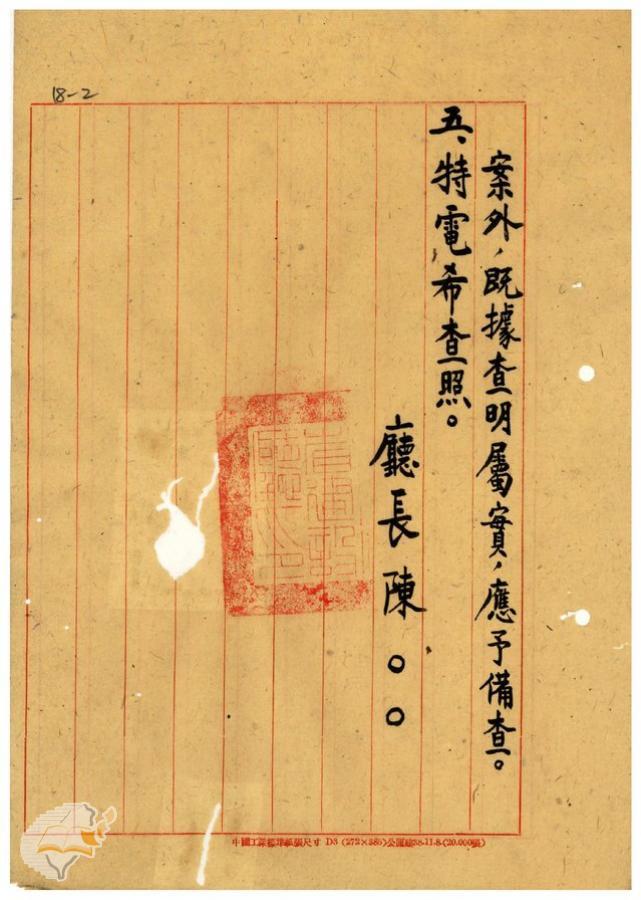 18-2
案外，既據查明屬實，應予備查。
五、特電希查照。
廳長陳○○
中國工業標準紙張尺寸 D3 (272×385)公圖總38.11.8.(20.000張)